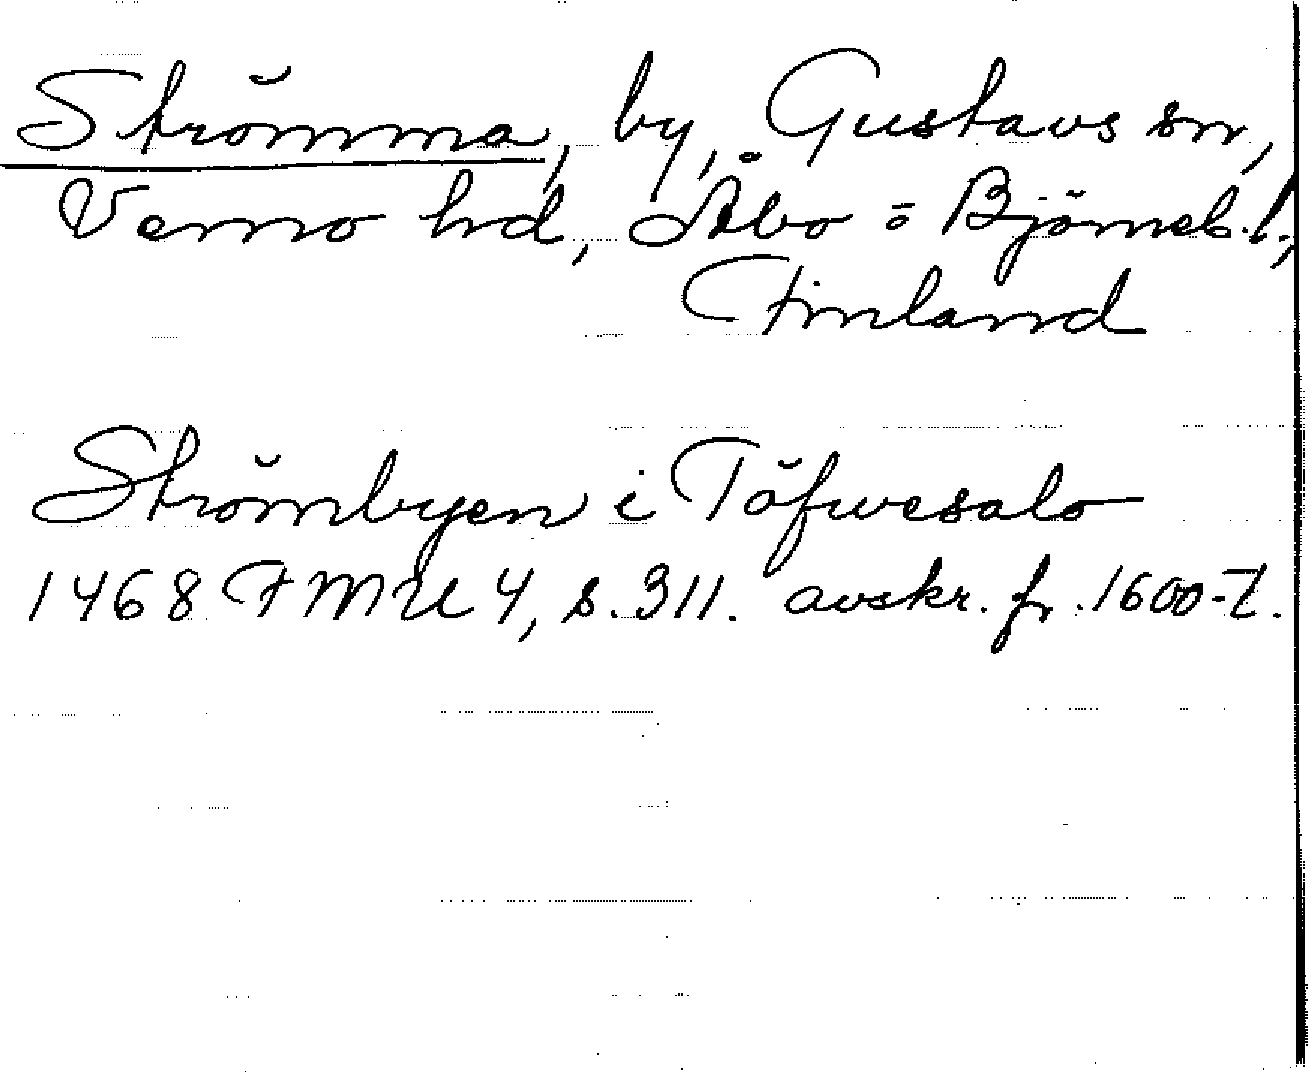 Strömma, by, Gustavs sn,
Vemo hd, Åbo o Björneb. l.,
Finland
Strömbyen i Töfwesalo
1468 FMU 4, s. 311. avskr. fr. 1600-t.